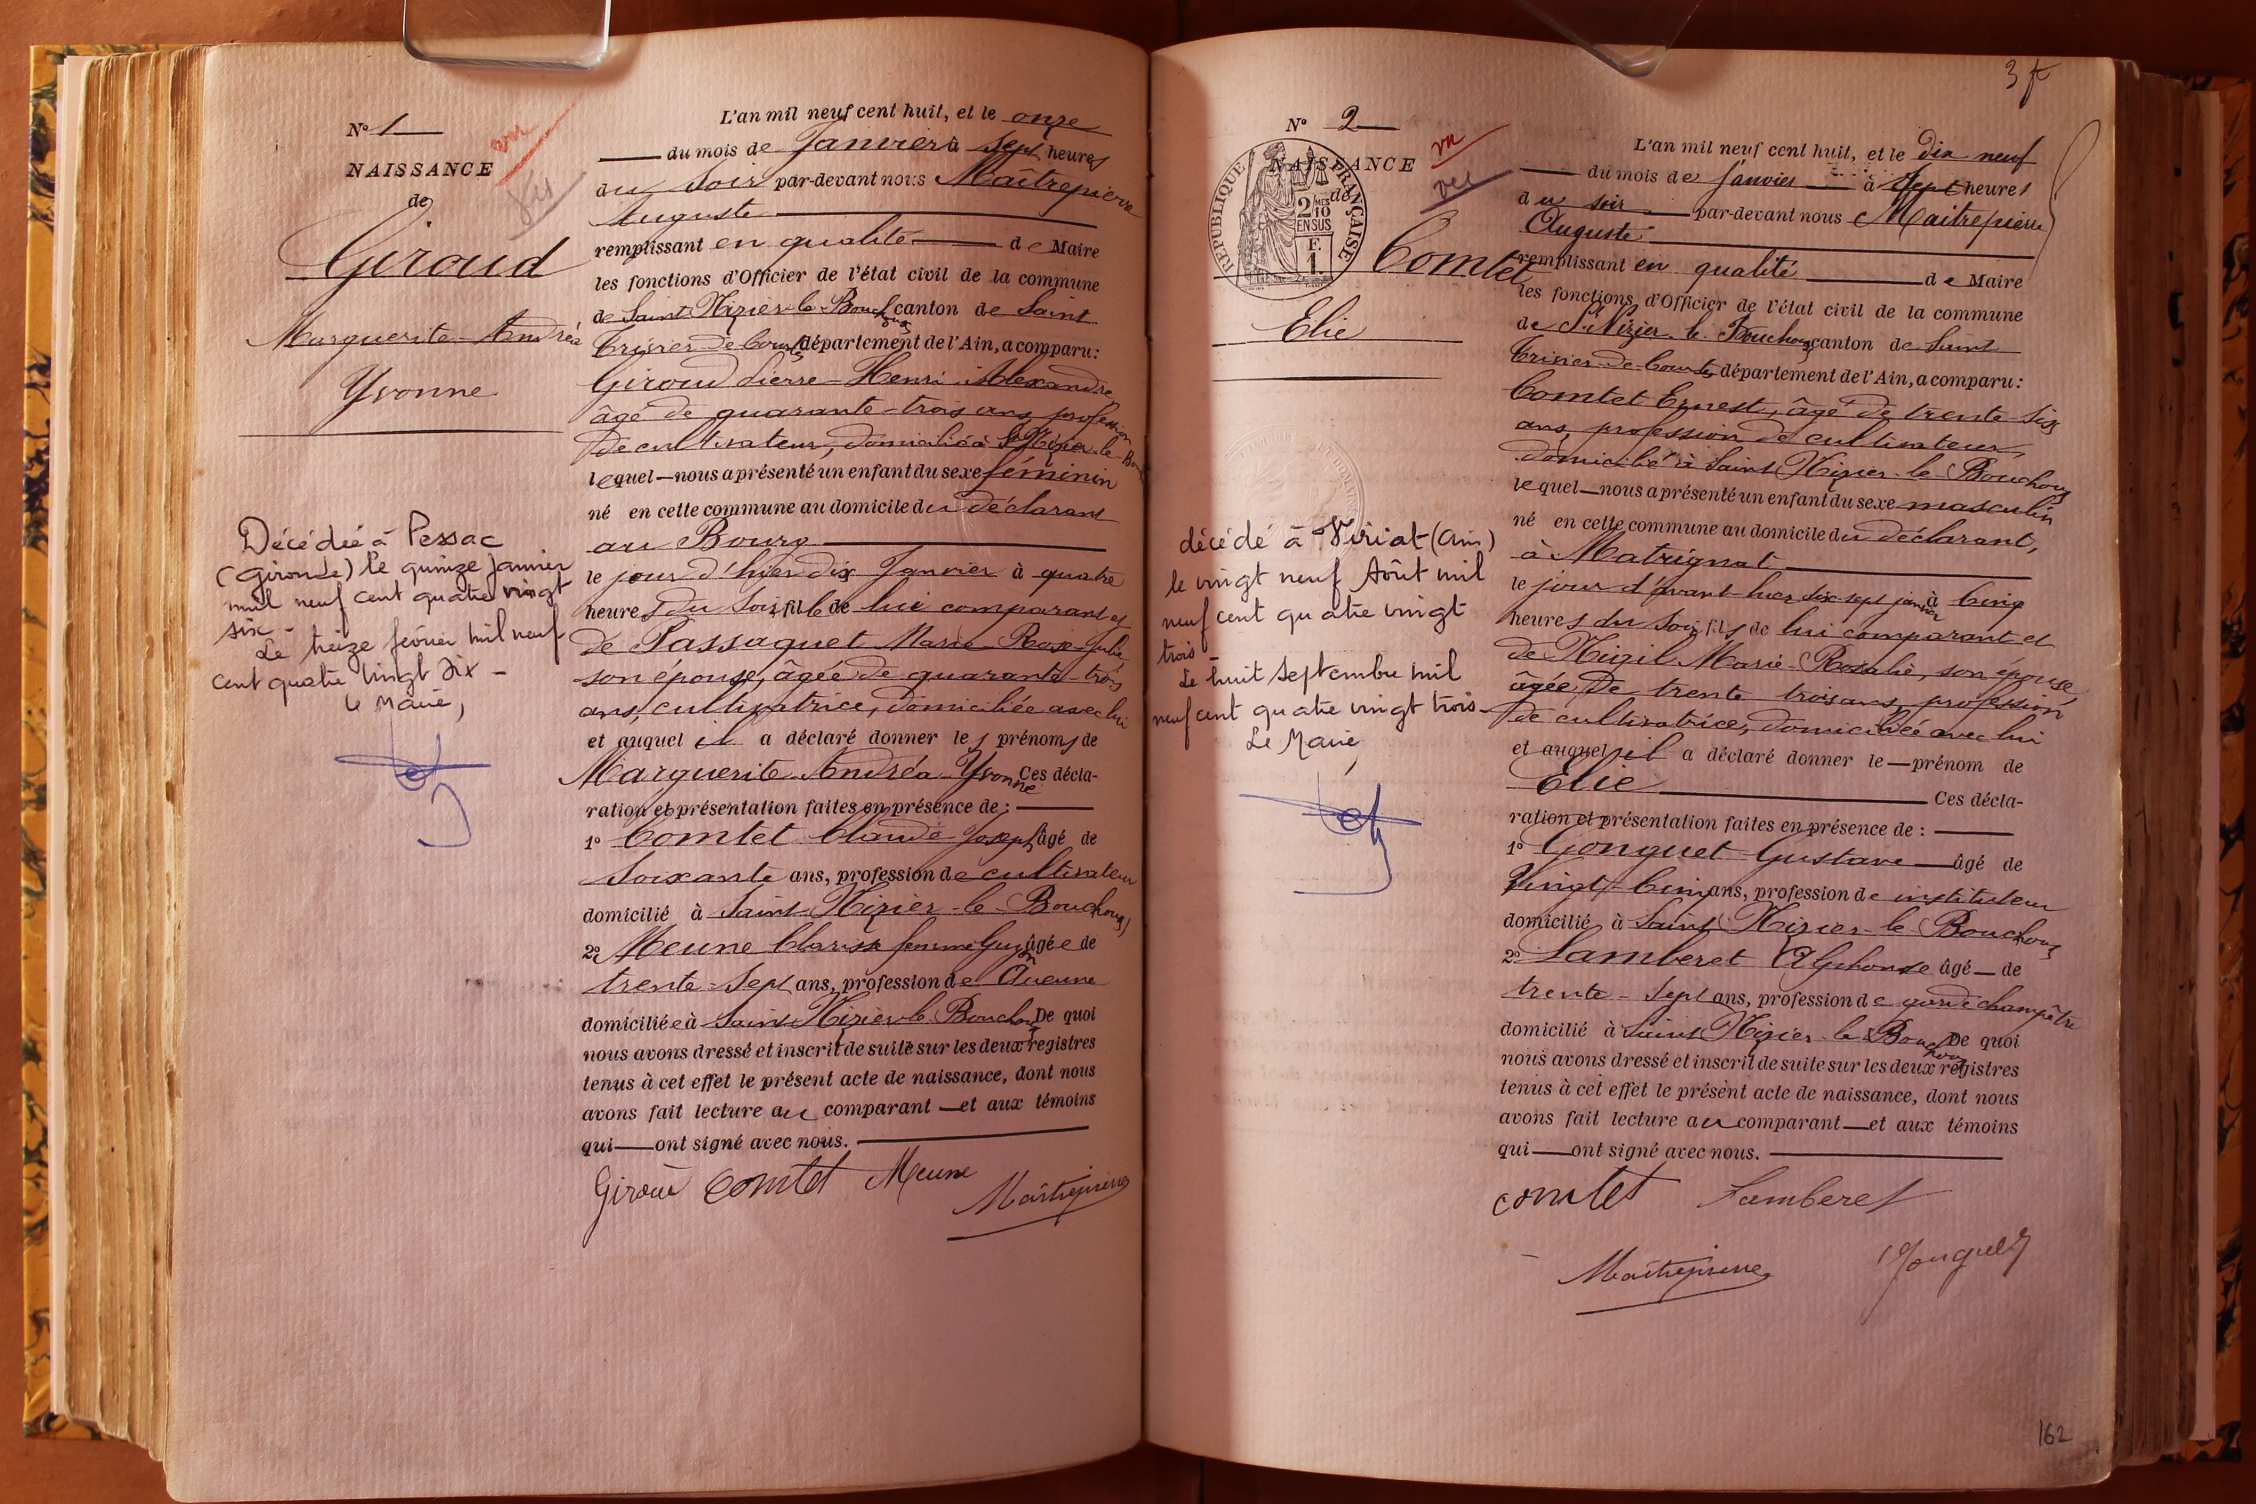 N° 1
vu
NAISSANCE
de
Giroud
Marguerite-Andréa
Yvonne
Décédée à Pessac
(Gironde) le quinze janvier
mil neuf cent quatre vingt
six -
Le treize février mil neuf
cent quatre vingt six -
Le Maire,
L'an mil neuf cent huit, et le onze
du mois de Janvier à sept heures
du soir par-devant nous Maîtrepierre
Auguste
remplissant en qualité de Maire
les fonctions d'Officier de l'état civil de la commune
de Saint-Nizier-le-Bouchoux canton de Saint
Trivier-de-Courtes département de l'Ain, a comparu:
Giroud Pierre-Henri-Alexandre
âgé de quarante-trois ans, profession
de cultivateur, domicilié à St Nizier-le-Boux
lequel nous a présenté un enfant du sexe féminin
né en cette commune au domicile du déclarant
au Bourg
le jour d'hier dix Janvier à quatre
heures du soir, fille de lui comparant et
de Passaquet Marie-Rose-Julie
son épouse, âgée de quarante-trois
ans, cultivatrice, domiciliée avec lui
et auquel il a déclaré donner les prénoms de
Marguerite-Andréa-Yvonne Ces décla-
ration et présentation faites en présence de :
1° Comtet Claude-Joseph âgé de
soixante ans, profession de cultivateur
domicilié à Saint-Nizier-le-Bouchoux
2° Meune Clarisse femme Guy âgée de
trente-sept ans, profession de Aucune
domiciliée à Saint-Nizier-le-Bouchoux De quoi
nous avons dressé et inscrit de suite sur les deux registres
tenus à cet effet le présent acte de naissance, dont nous
avons fait lecture au comparant et aux témoins
qui ont signé avec nous.
Giroud Comtet Meune
Maîtrepierre
3 ft
N° 2
vu
vu
NAISSANCE
de
RÉPUBLIQUE FRANÇAISE
2 MES
10
EN SUS
F.
1.
Comtet
Elie
décédé à Viriat (Ain)
le vingt neuf Août mil
neuf cent quatre vingt
trois -
Le huit septembre mil
neuf cent quatre vingt trois -
Le Maire,
L'an mil neuf cent huit, et le dix neuf
du mois de janvier à sept heures
du soir par-devant nous Maîtrepierre
Auguste
remplissant en qualité de Maire
les fonctions d'Officier de l'état civil de la commune
de St Nizier-le-Bouchoux canton de Saint
Trivier-de-Courtes département de l'Ain, a comparu:
Comtet Ernest, âgé de trente-six
ans, profession de cultivateur,
domicilié à Saint Nizier-le-Bouchoux
lequel nous a présenté un enfant du sexe masculin
né en cette commune au domicile du déclarant,
à Matrignat
le jour d'avant hier dix-sept janvier à cinq
heures du soir, fils de lui comparant et
de Nigil Marie-Rosalie, son épouse,
âgée de trente trois ans, profession
de cultivatrice, domiciliée avec lui
et auquel il a déclaré donner le prénom de
Elie Ces décla-
ration et présentation faites en présence de :
1° Gonguet Gustave âgé de
Vingt-Cinq ans, profession de instituteur
domicilié à Saint-Nizier-le-Bouchoux
2° Lamberet Alphonse âgé de
trente-sept ans, profession de garde champêtre
domicilié à Saint Nizier-le-Bouchoux De quoi
nous avons dressé et inscrit de suite sur les deux registres
tenus à cet effet le présent acte de naissance, dont nous
avons fait lecture au comparant et aux témoins
qui ont signé avec nous.
Comtet Lamberet
Maîtrepierre Gonguet
162